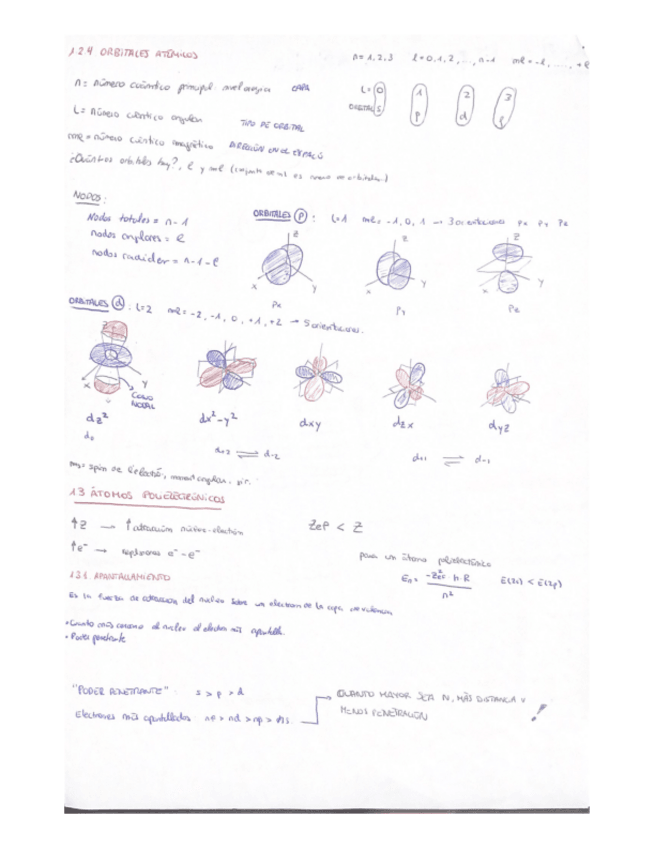 1.2.4 ORBITALES ATÓMICOS
n=1,2,3 l=0,1,2,...,n-1 ml=-l,....,+l
n= número cuántico principal nivel energía CAPA
l= 0 1 2 3
ORBITAL s p d f
l= número cuántico angular TIPO DE ORBITAL
ml= número cuántico magnético DIRECCIÓN EN EL ESPACIO
¿Cuántos orbitales hay?, l y ml
NODOS:
Nodos totales = n-1
nodos angulares = l
nodos radiales = n-1-l
ORBITALES (p): l=1 ml=-1,0,1 → 3 orientaciones px py pz
z
x
y
px
z
x
y
py
z
x
y
pz
ORBITALES (d): l=2 ml=-2,-1,0,+1,+2 → 5 orientaciones.
z
x
y
CONO
NODAL
dz² dx²-y² dxy dzx dyz
d0
d+2 ⇌ d-2 d+1 ⇌ d-1
ms= spin de
1.3 ÁTOMOS POLIELECTRÓNICOS
↑Z → ↑ atracción núcleo-electrón
Zef < Z
↑e⁻ → repulsiones e⁻-e⁻
para un átomo polielectrónico
En = -Zef² h·R / n² E(2s) < E(2p)
1.3.1 APANTALLAMIENTO
Es la fuerza de atracción del núcleo sobre un electrón de la capa de valencia
• Cuanto más cercano al núcleo el electrón más apantalla
• Poder penetrante
"PODER PENETRANTE" s > p > d
Electrones más apantallados nf > nd > np > ns
CUANTO MAYOR SEA N, MÁS DISTANCIA Y
MENOS PENETRACIÓN !